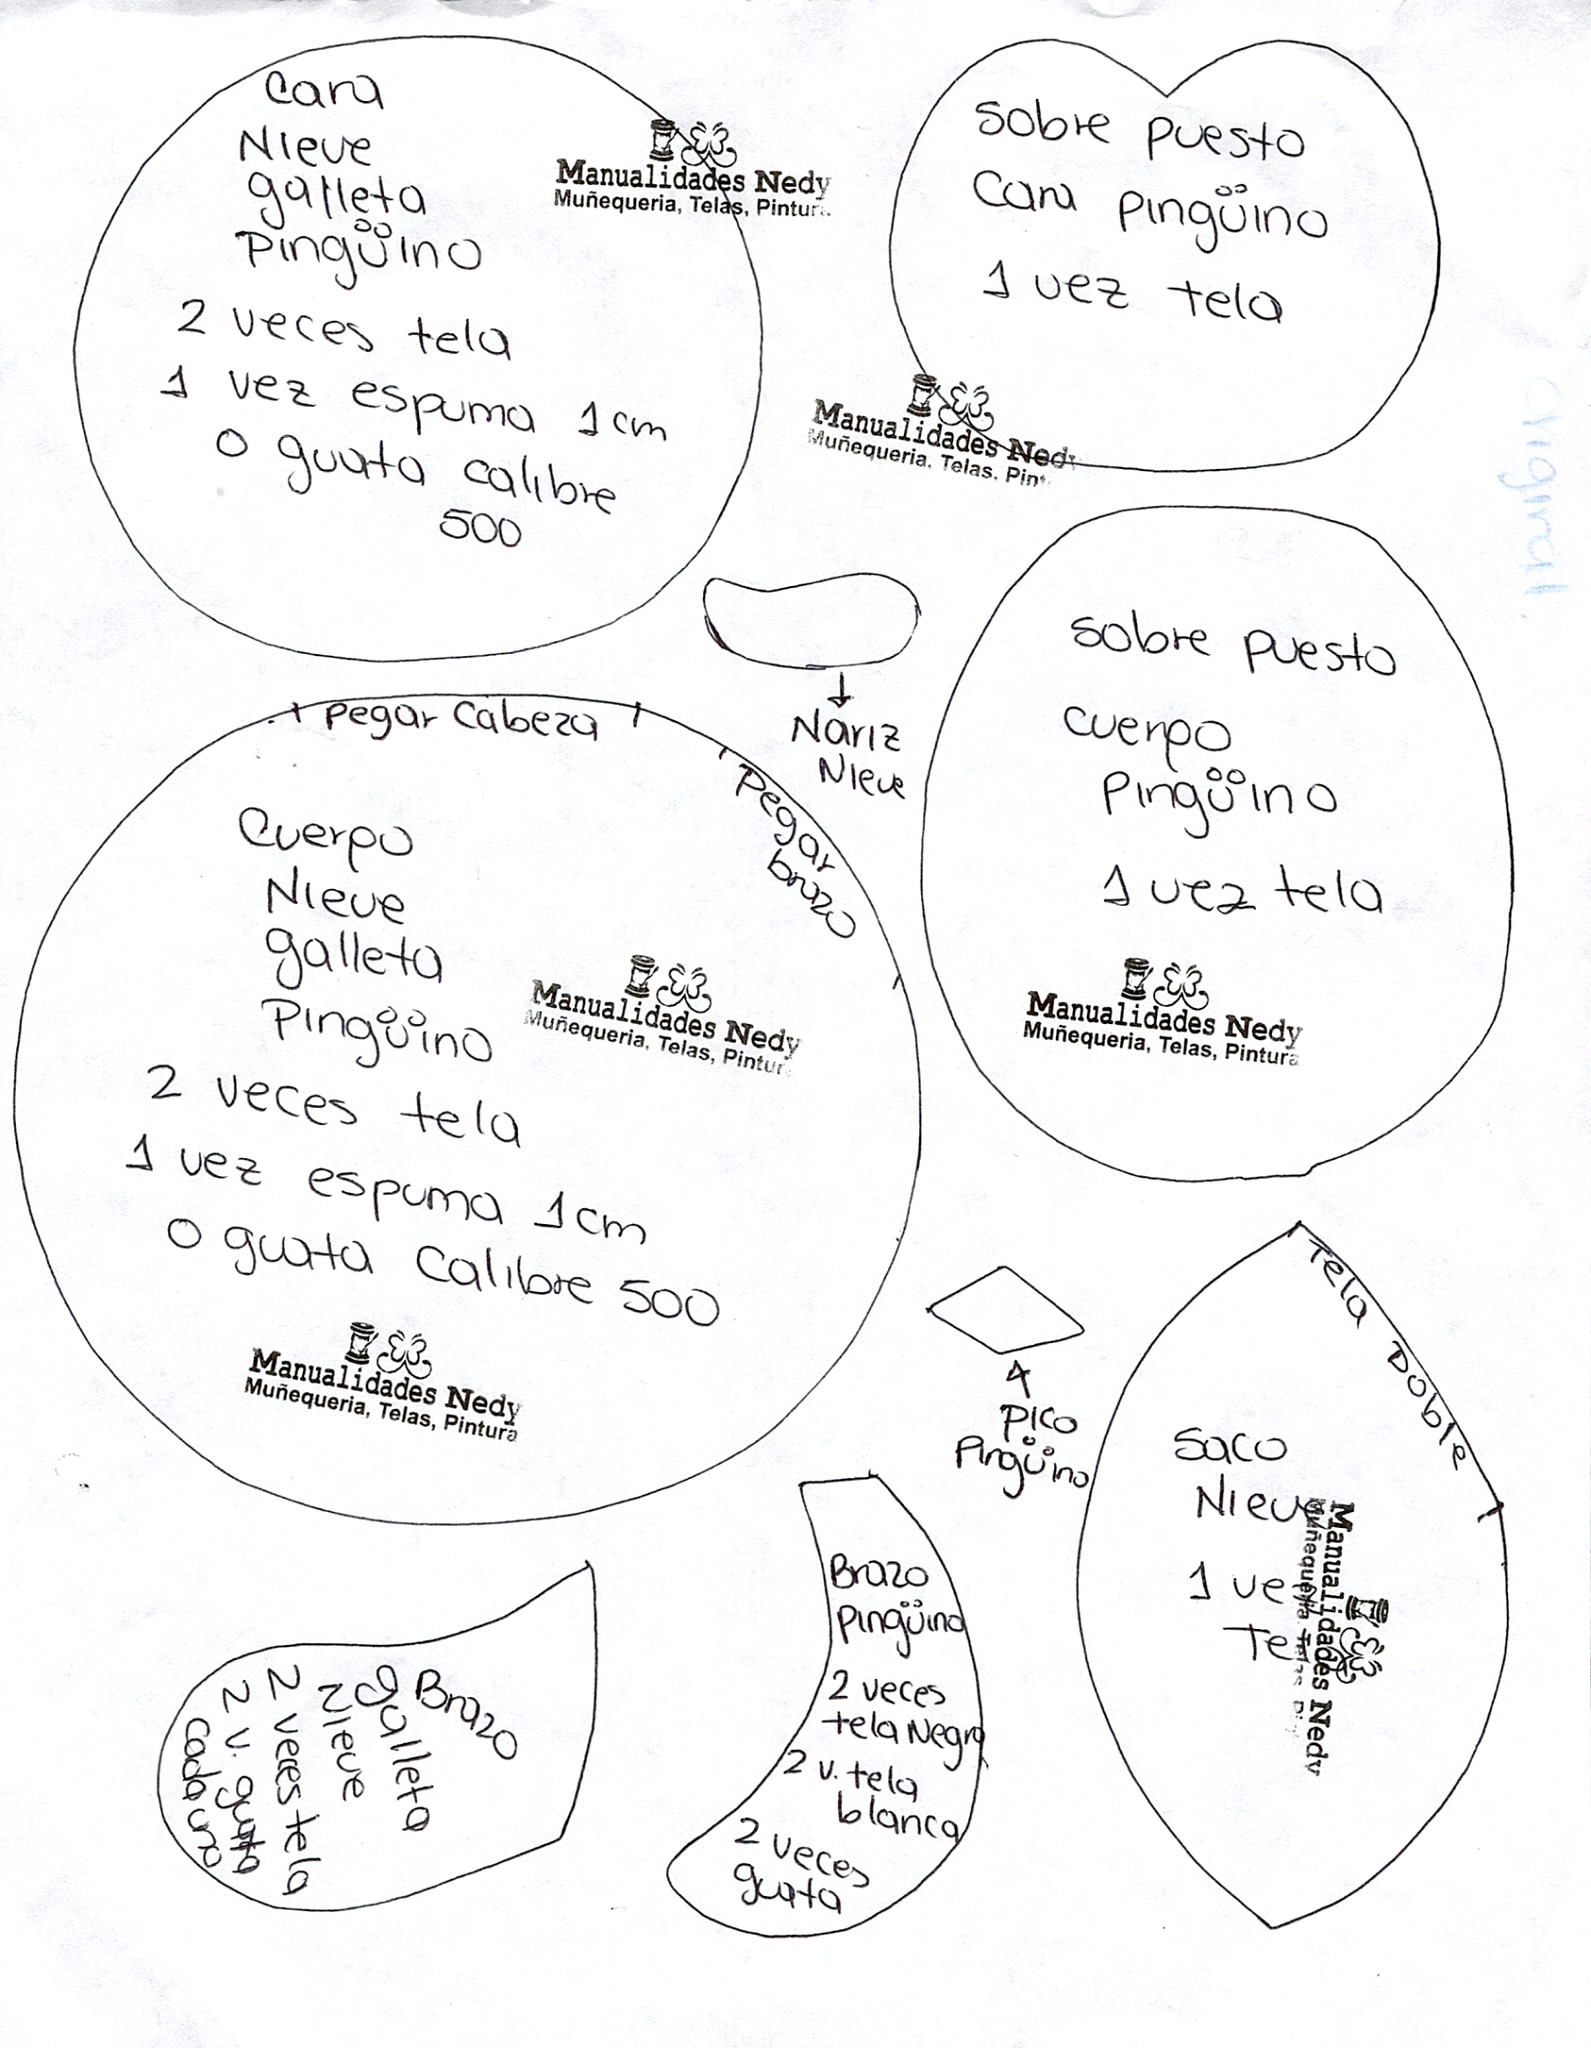 Cara
Nieve
galleta
Pingüino
2 veces tela
1 vez espuma 1cm
o guata calibre
500
Manualidades Nedy
Muñequeria, Telas, Pintura
Sobre puesto
Cara pingüino
1 vez tela
Manualidades Nedy
Muñequeria. Telas. Pint
original.
Nariz
Nieve
Sobre puesto
cuerpo
Pingüino
1 vez tela
Manualidades Nedy
Muñequeria, Telas, Pintura
Pegar Cabeza
Pegar
brazo
Cuerpo
Nieve
galleta
Pingüino
Manualidades Nedy
Muñequeria, Telas, Pintur
2 veces tela
1 vez espuma 1cm
o guata Calibre 500
Manualidades Nedy
Muñequeria, Telas, Pintura
Pico
Pingüino
Tela Doble
Saco
Nieve
1 ve
Te
Manualidades Nedy
Muñequeria Telas
Brazo
galleta
Nieve
2 veces tela
2 v. guata
cada uno
Brazo
Pingüino
2 veces
tela Negra
2 v. tela
blanca
2 veces
guata